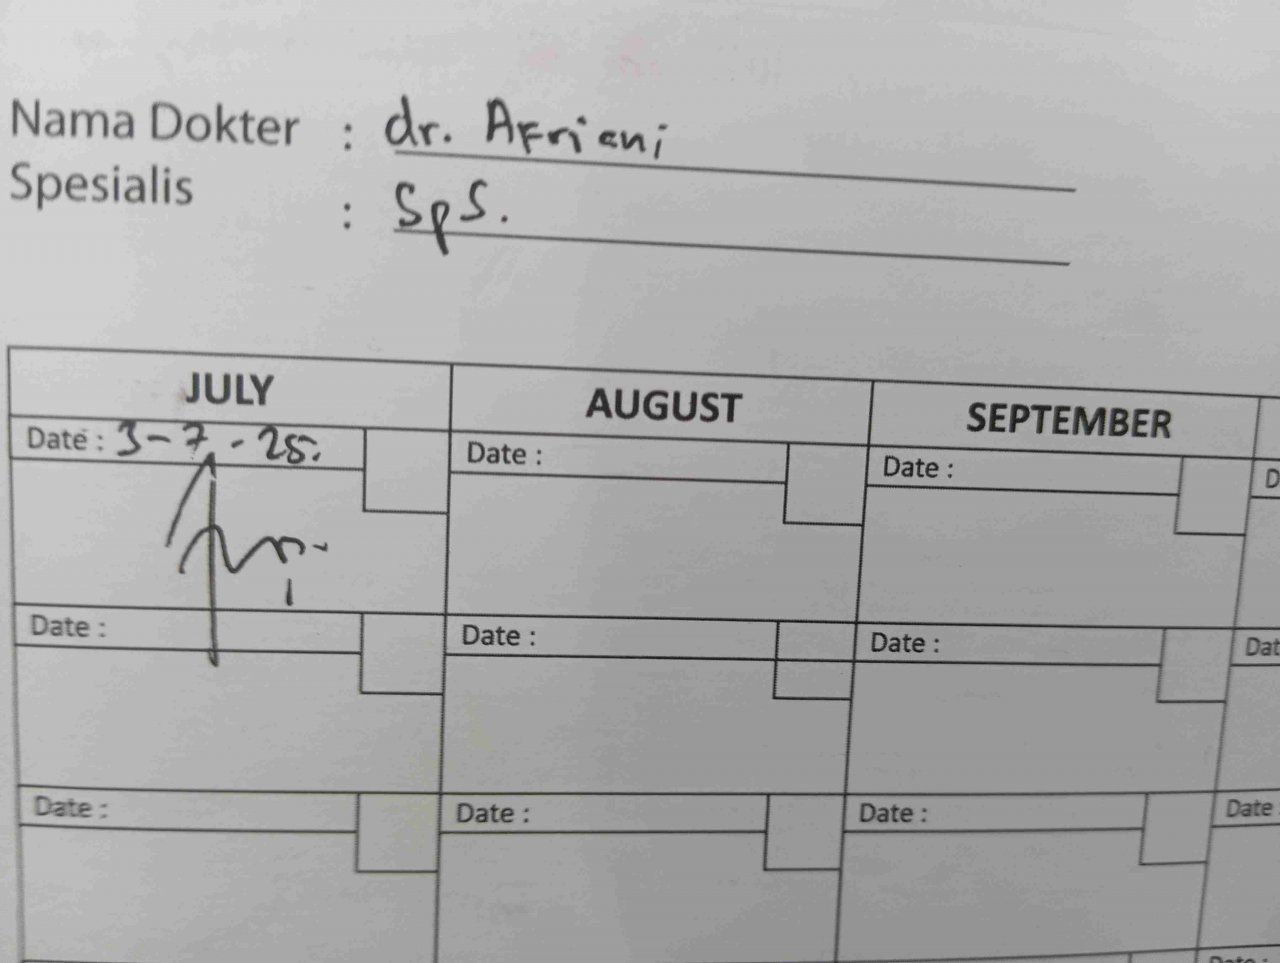 Nama Dokter : dr. Afriani
Spesialis : SpS.
JULY AUGUST SEPTEMBER
Date : 3-7-25. Date : Date :
Date : Date : Date : Dat
Date : Date : Date : Date
Date :